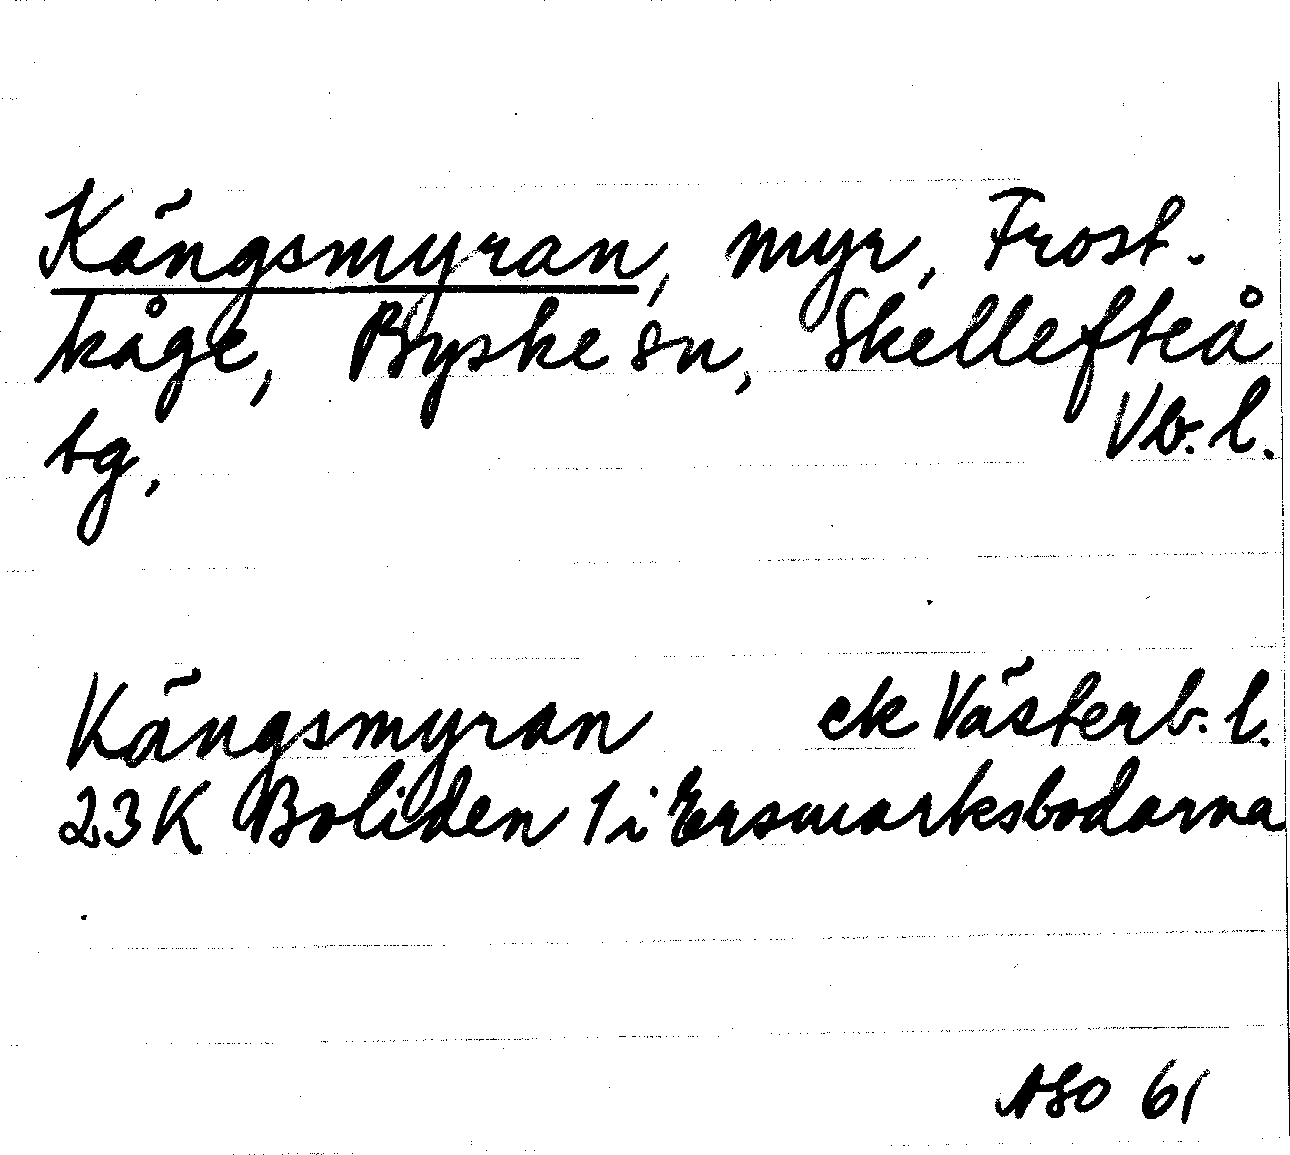 Kängsmyran, myr, Frost-
kåge, Byske sn, Skellefteå
tg, Vb. l.
Kängsmyran ek Västerb. l.
23K Boliden 1 i Ersmarksbodarna
ASO 61